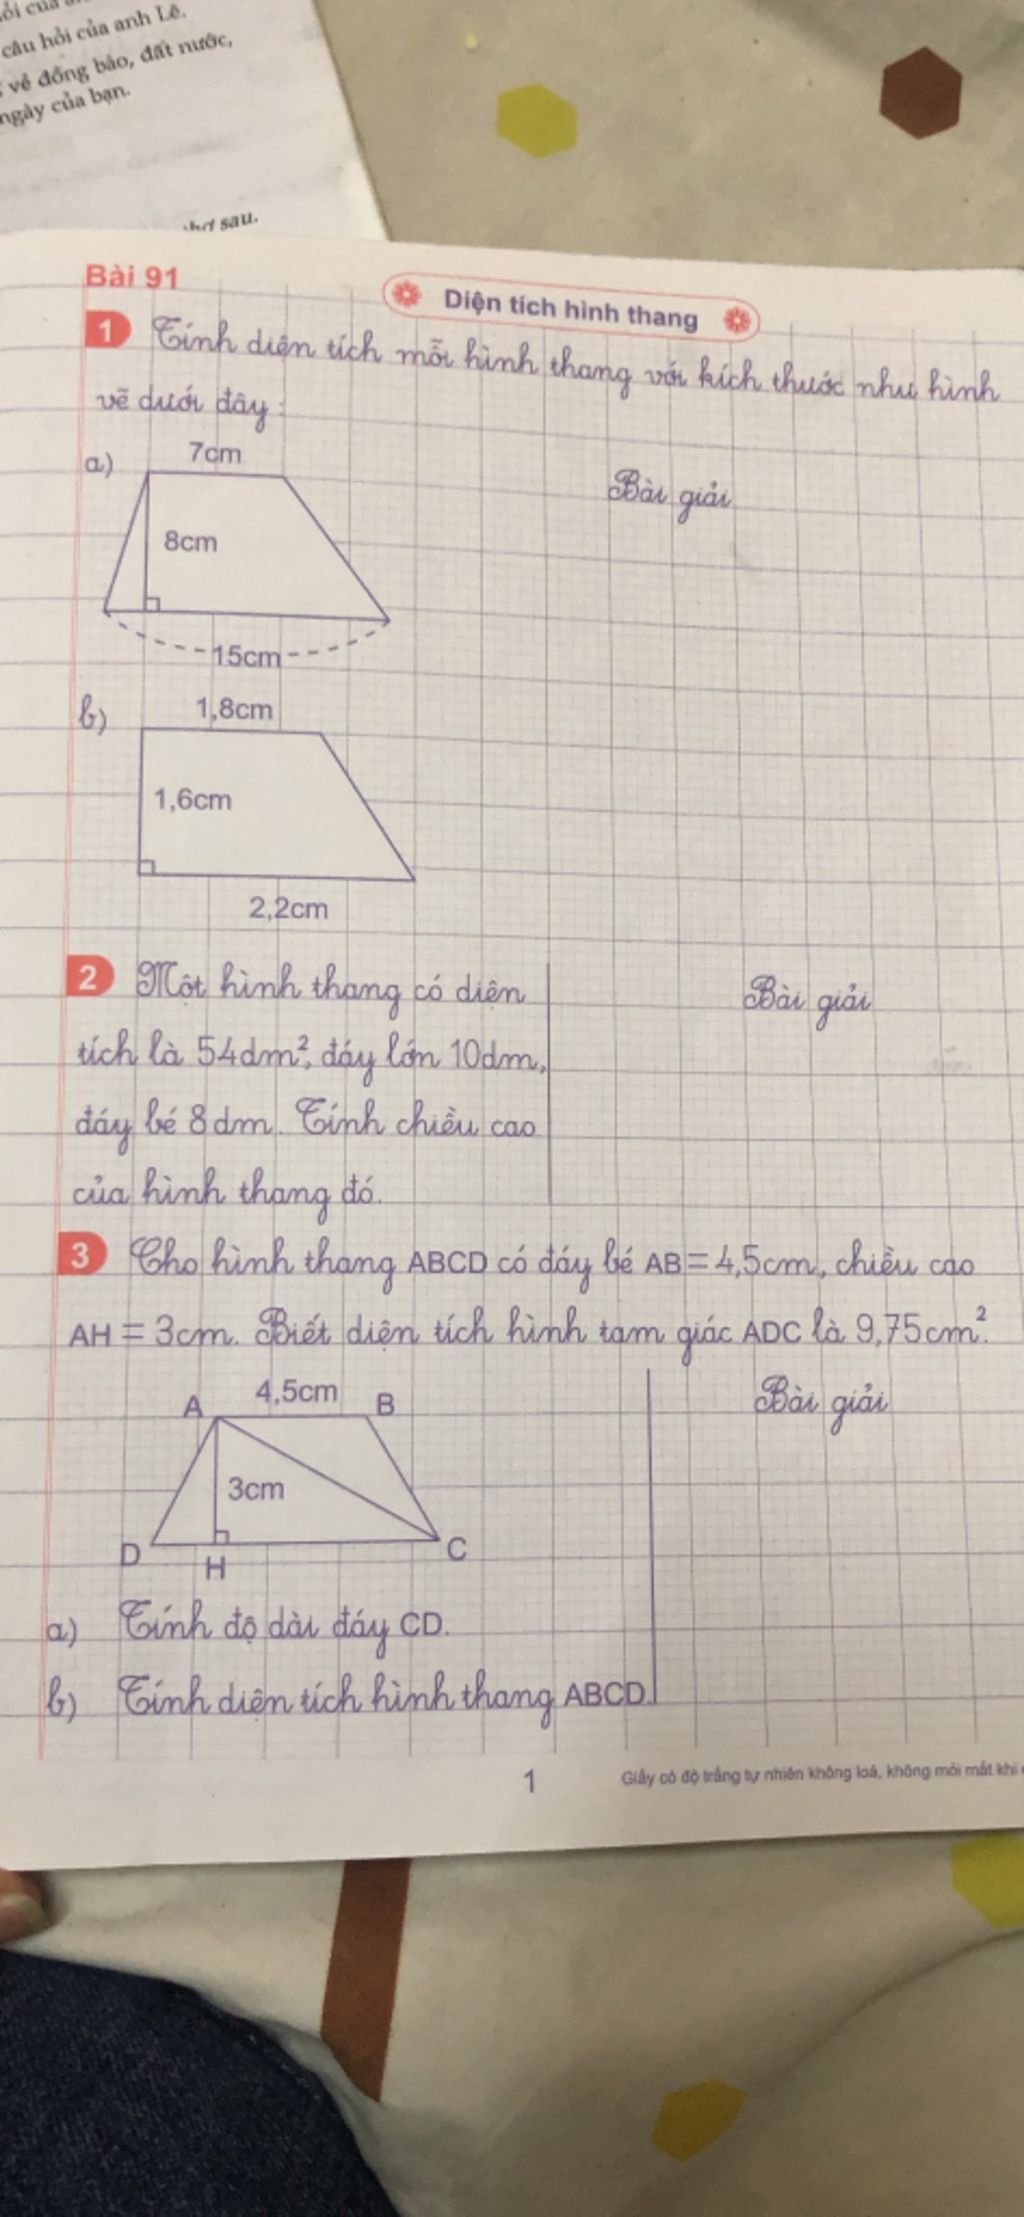 câu hỏi của anh Lê.
về đồng bào, đất nước,
ngày của bạn.
sau.
Bài 91
Diện tích hình thang
1 Tính diện tích mỗi hình thang với kích thước như hình
vẽ dưới đây:
a) 7cm
Bài giải
8cm
15cm
b) 1,8cm
1,6cm
2,2cm
2 Một hình thang có diện
tích là 54dm², đáy lớn 10dm,
đáy bé 8dm. Tính chiều cao
của hình thang đó.
Bài giải
3 Cho hình thang ABCD có đáy bé AB = 4,5cm, chiều cao
AH = 3cm. Biết diện tích hình tam giác ADC là 9,75cm².
A 4,5cm B
3cm
D H C
Bài giải
a) Tính độ dài đáy CD.
b) Tính diện tích hình thang ABCD.
1
Giấy có độ trắng tự nhiên không loá, không mỏi mắt khi